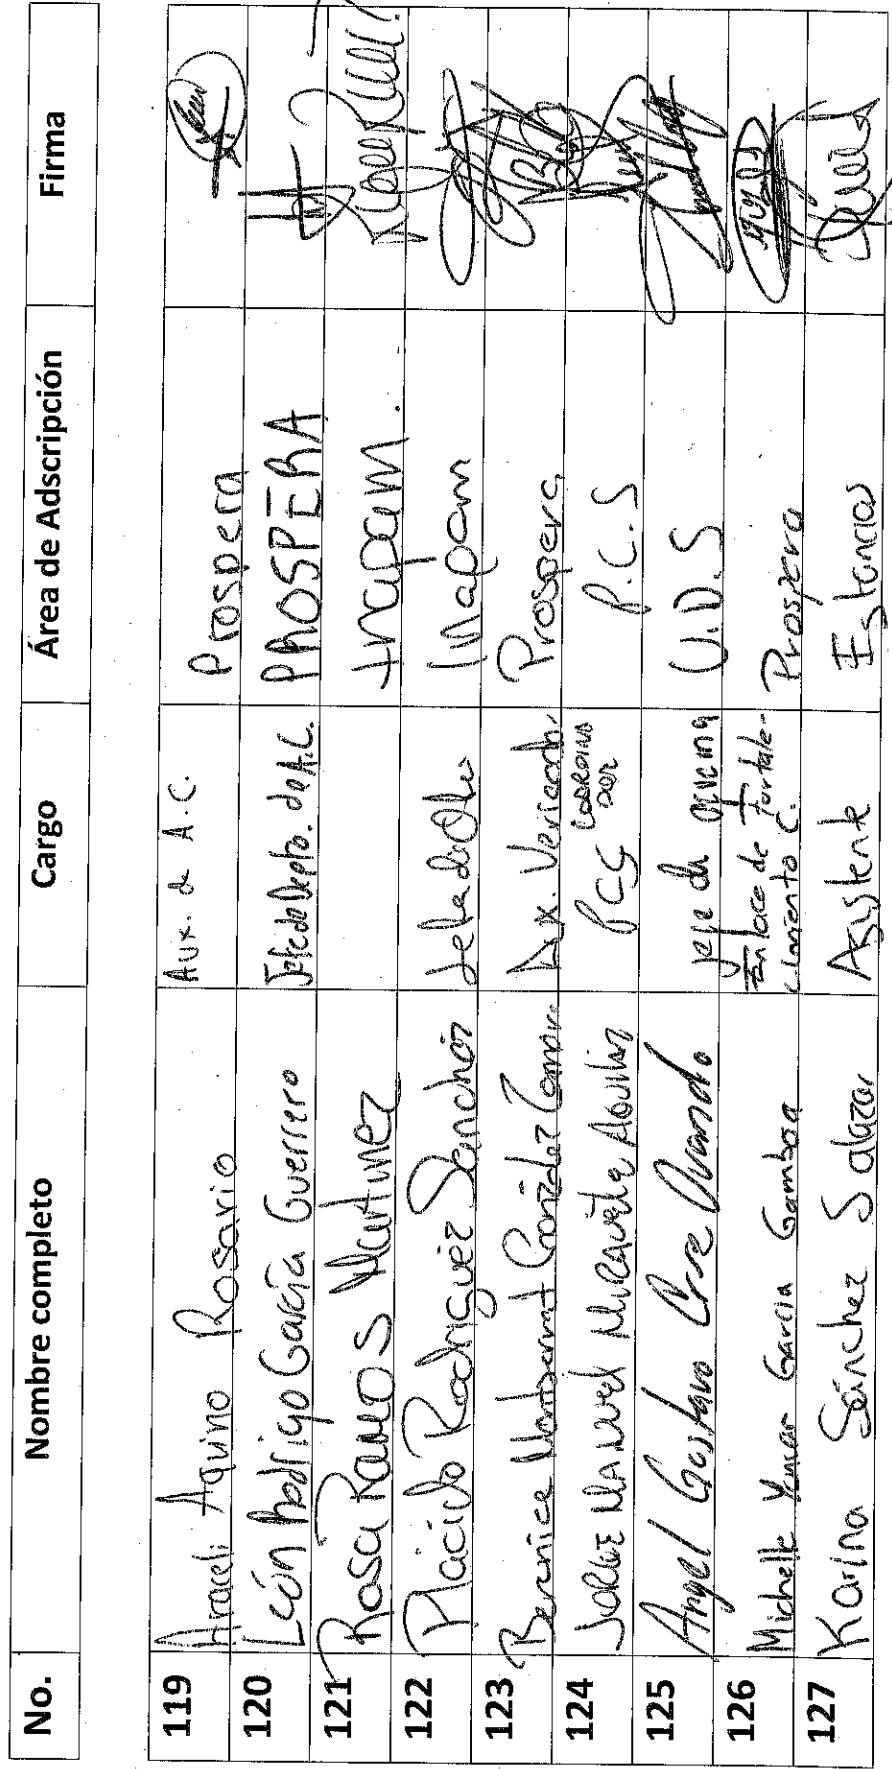 No. Nombre completo Cargo Área de Adscripción Firma
119 Araceli Aquino Rosario Aux. de A.C. Prospera
120 León Rodrigo García Guerrero Jefe de Depto. de A.C. PROSPERA
121 Rosa Ramos Martinez Inapam.
122 Plácido Rodriguez Sanchez Jefa de Inapam
123 Berenice Monserrat González Aux. Prospera
124 JORGE MANUEL MIRAVETE Aguilar PCS COORDINA
DOR P.C.S
125 Angel Gustavo Cruz Ovando jefe de oficina U.D.S
126 Michelle Yemcar García Gamboa Enlace de Fortale-
cimiento C. Prospera
127 Karina Sánchez Salazar Asistente Estancias